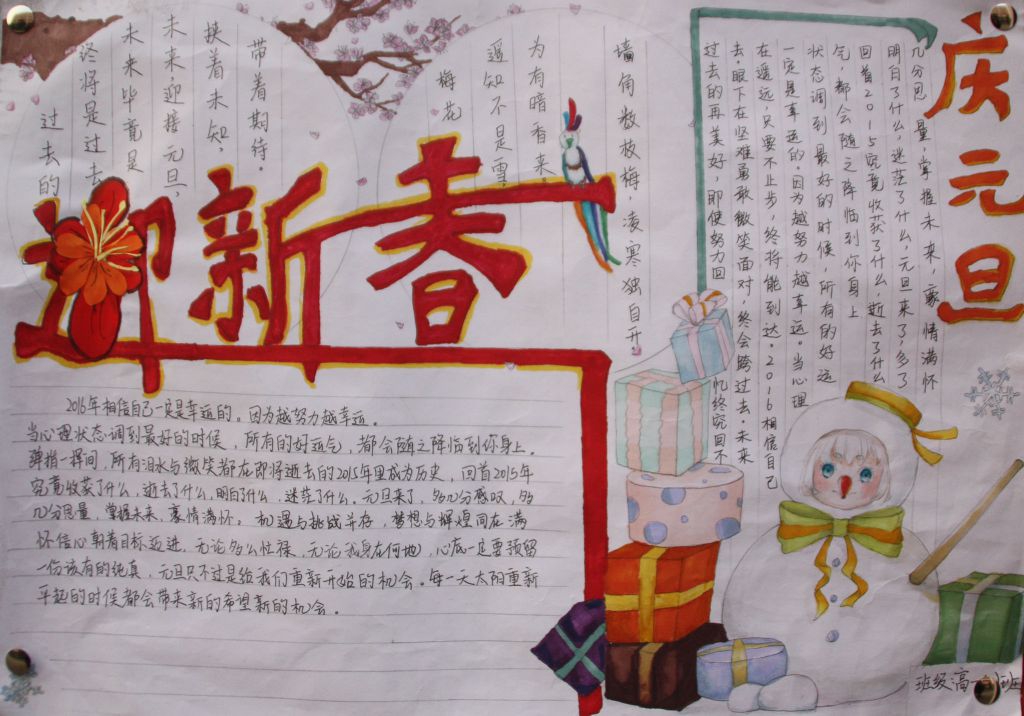 迎新春
庆元旦
过去的
终将是过去
未来毕竟是
未来,迎接元旦,
挟着未知,
带着期待。
梅花
遥知不是雪,
为有暗香来
墙角数枝梅,凌寒独自开。
过去的再美好,即使努力回忆终究回不
去,眼下在坚难勇敢微笑面对,终会跨过去。未来
在遥远,只要不止步,终将能到达。2016相信自己
一定是幸运的。因为越努力越幸运。当心理
状态调到最好的时候,所有的好运
气,都会随之降临到你身上
回首2015究竟收获了什么 逝去了什么
明白了什么,迷茫了什么,元旦来了多了
几分思量,掌握未来,豪情满怀
2016年相信自己一定是幸运的。因为越努力越幸运。
当心理状态调到最好的时候,所有的好运气,都会随之降临到你身上。
弹指一挥间,所有泪水与微笑都在即将逝去的2015年里成为历史,回首2015年
究竟收获了什么,逝去了什么,明白了什么,迷茫了什么。元旦来了,多几分感叹,多
几分思量,掌握未来,豪情满怀。机遇与挑战并存,梦想与辉煌同在满
怀信心朝着目标迈进,无论多么忙禄,无论我身在何地,心底一定要预留
一份该有的纯真,元旦只不过是给我们重新开始的机会。每一天太阳重新
升起的时候都会带来新的希望新的机会。
班级高一